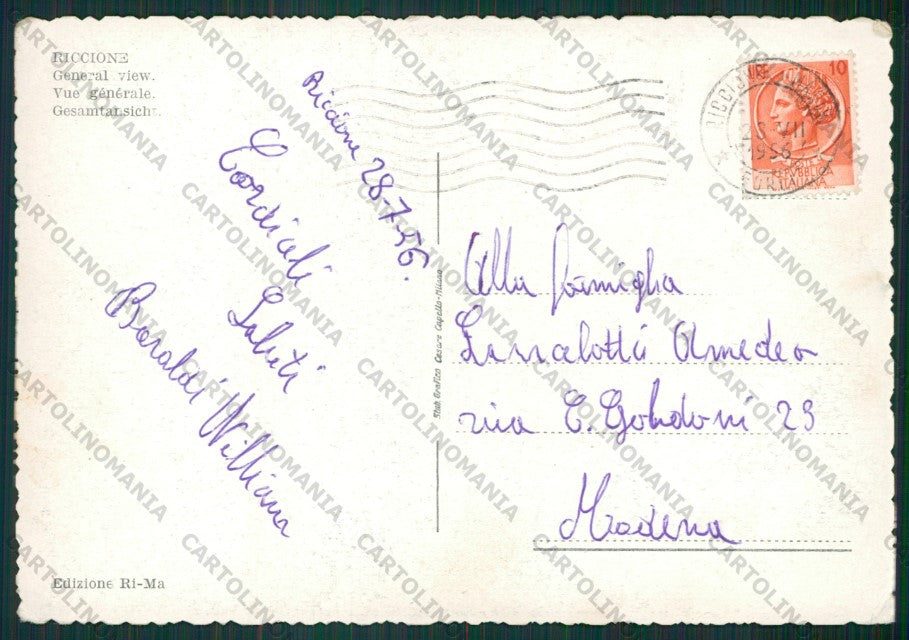 RICCIONE
General view.
Vue générale.
Gesamtansicht.
Riccione 28-7-56.
Cordiali
Saluti
Baraldi Williana
Edizione Ri-Ma
Stab. Grafico Cesare Capello-Milano
10
RICCIONE
28 VII
1956
POSTE
REPVBBLICA
ITALIANA
Alla famiglia
Lancelotti Amedeo
via C. Goldoni 23
Modena
CARTOLINOMANIA